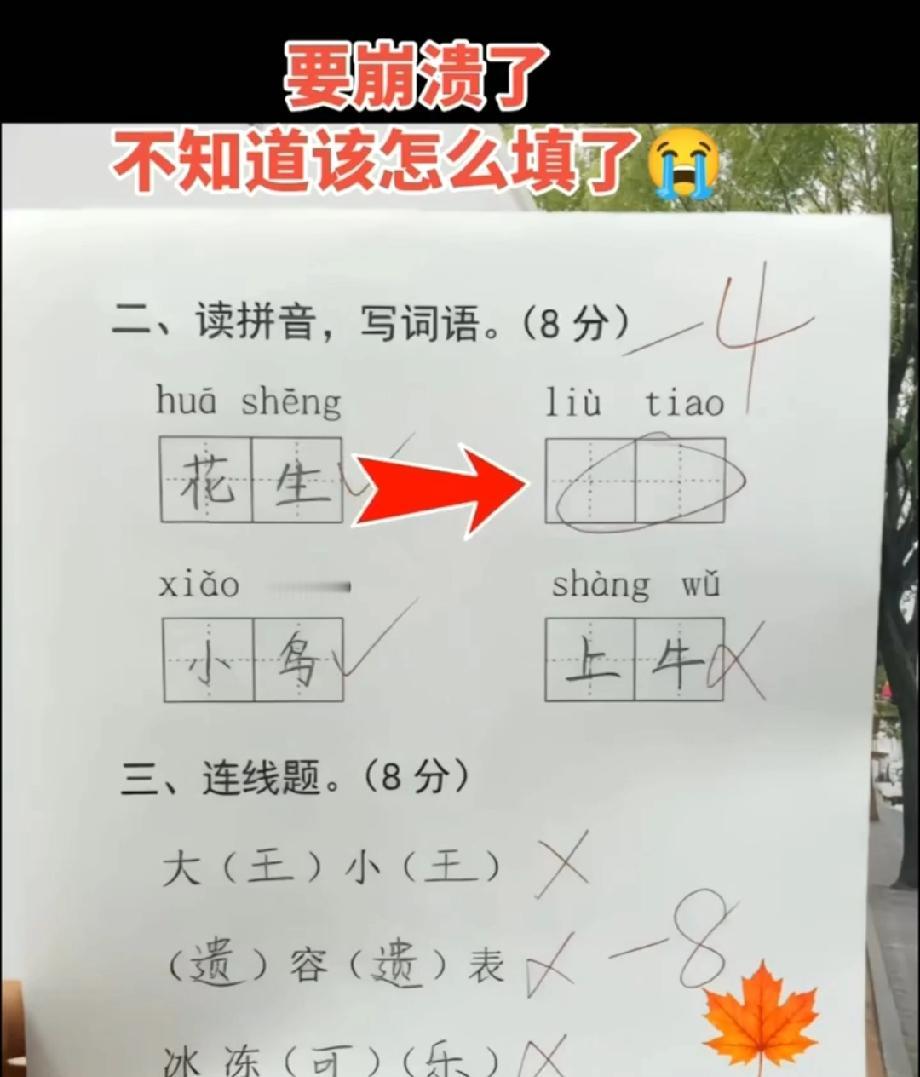 要崩溃了
不知道该怎么填了😭
二、读拼音，写词语。（8 分） -4
huā shēng liù tiao
花 生
xiǎo shàng wǔ
小 鸟 上 牛
三、连线题。（8 分）
大（王）小（王）
（遗）容（遗）表 -8
冰 冻（可）（乐）